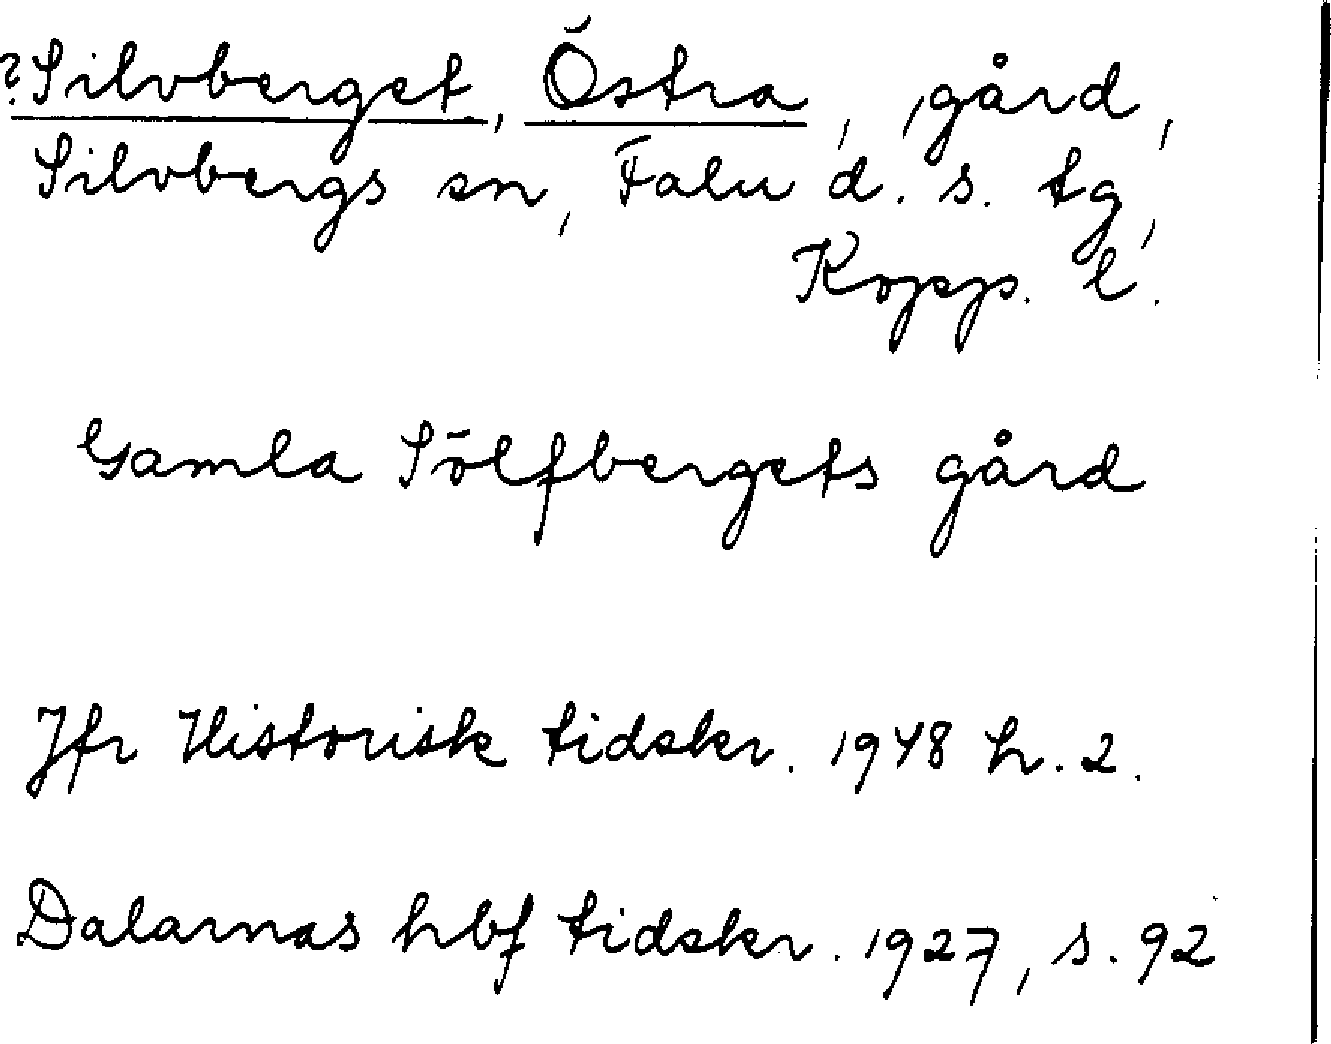 ?Silvberget, Östra, gård,
Silvbergs sn, Falu d. s. tg,
Kopp. l.
Gamla Sölfbergets gård
Jfr Historisk tidskr. 1948 h. 2.
Dalarnas hbf tidskr. 1927, s. 92